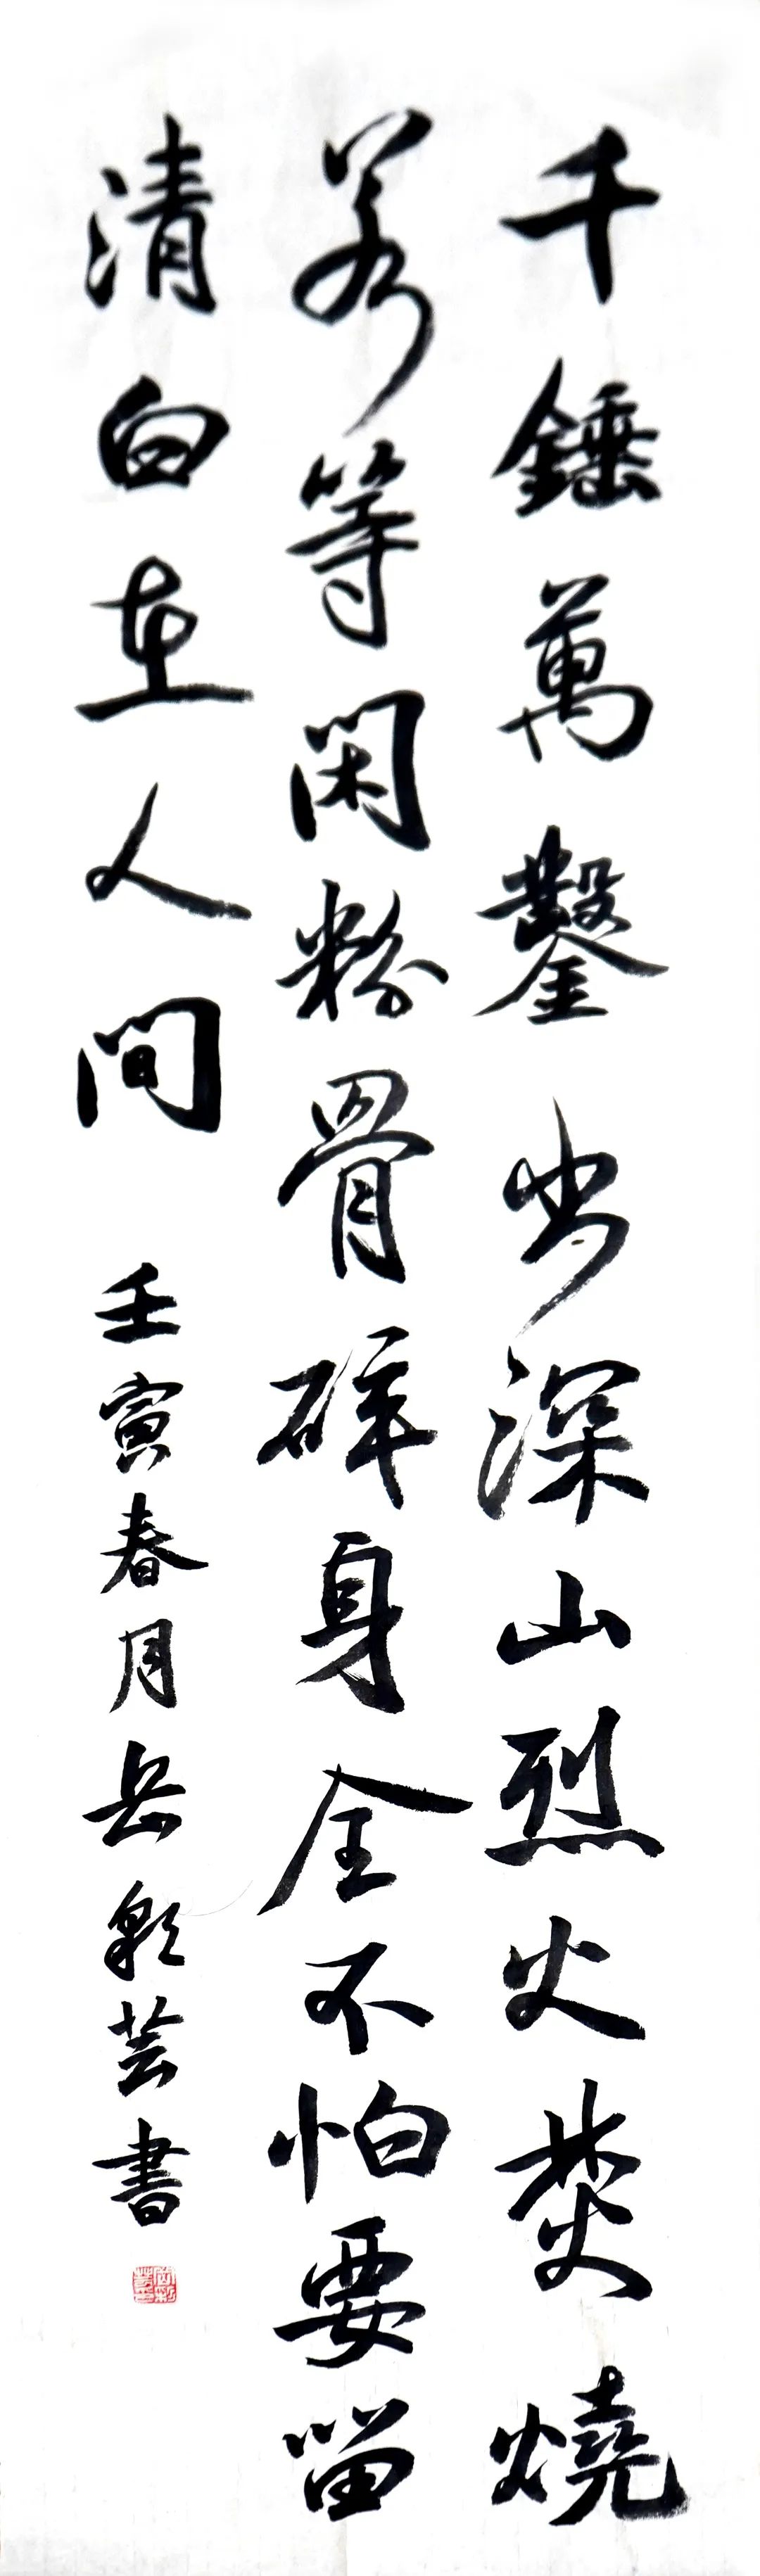 千錘萬鑿出深山烈火焚燒
若等閑粉骨碎身全不怕要留
清白在人間
壬寅春月岳彩芸書